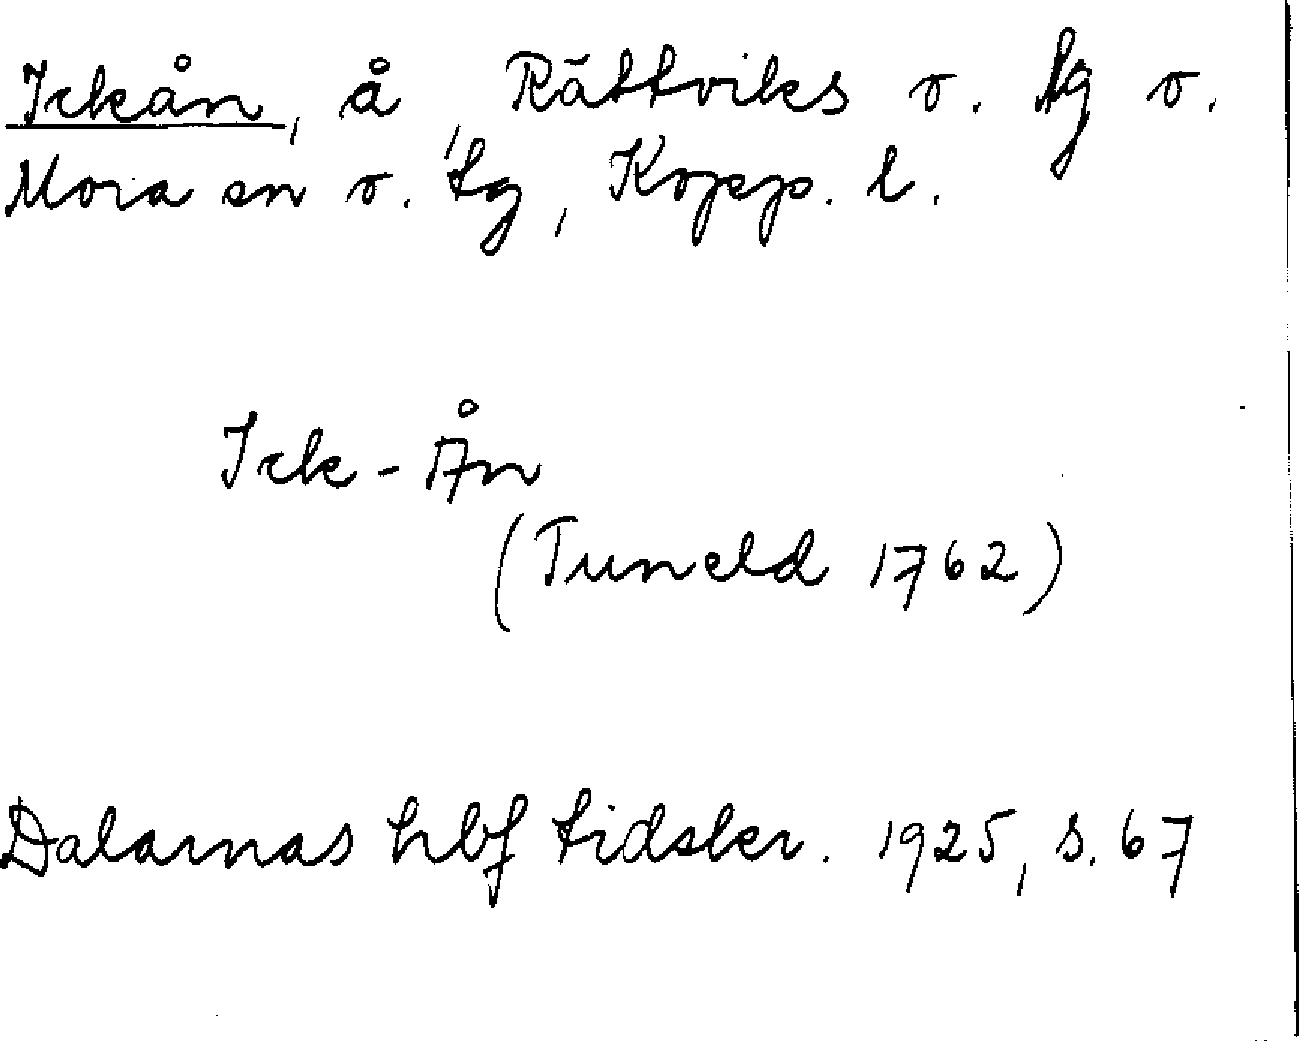 Ickån, å, Rättviks o. tg o.
Mora sn o. tg, Kopp. l.
Ick-Ån
(Tuneld 1762)
Dalarnas hbf tidskr. 1925, s. 67